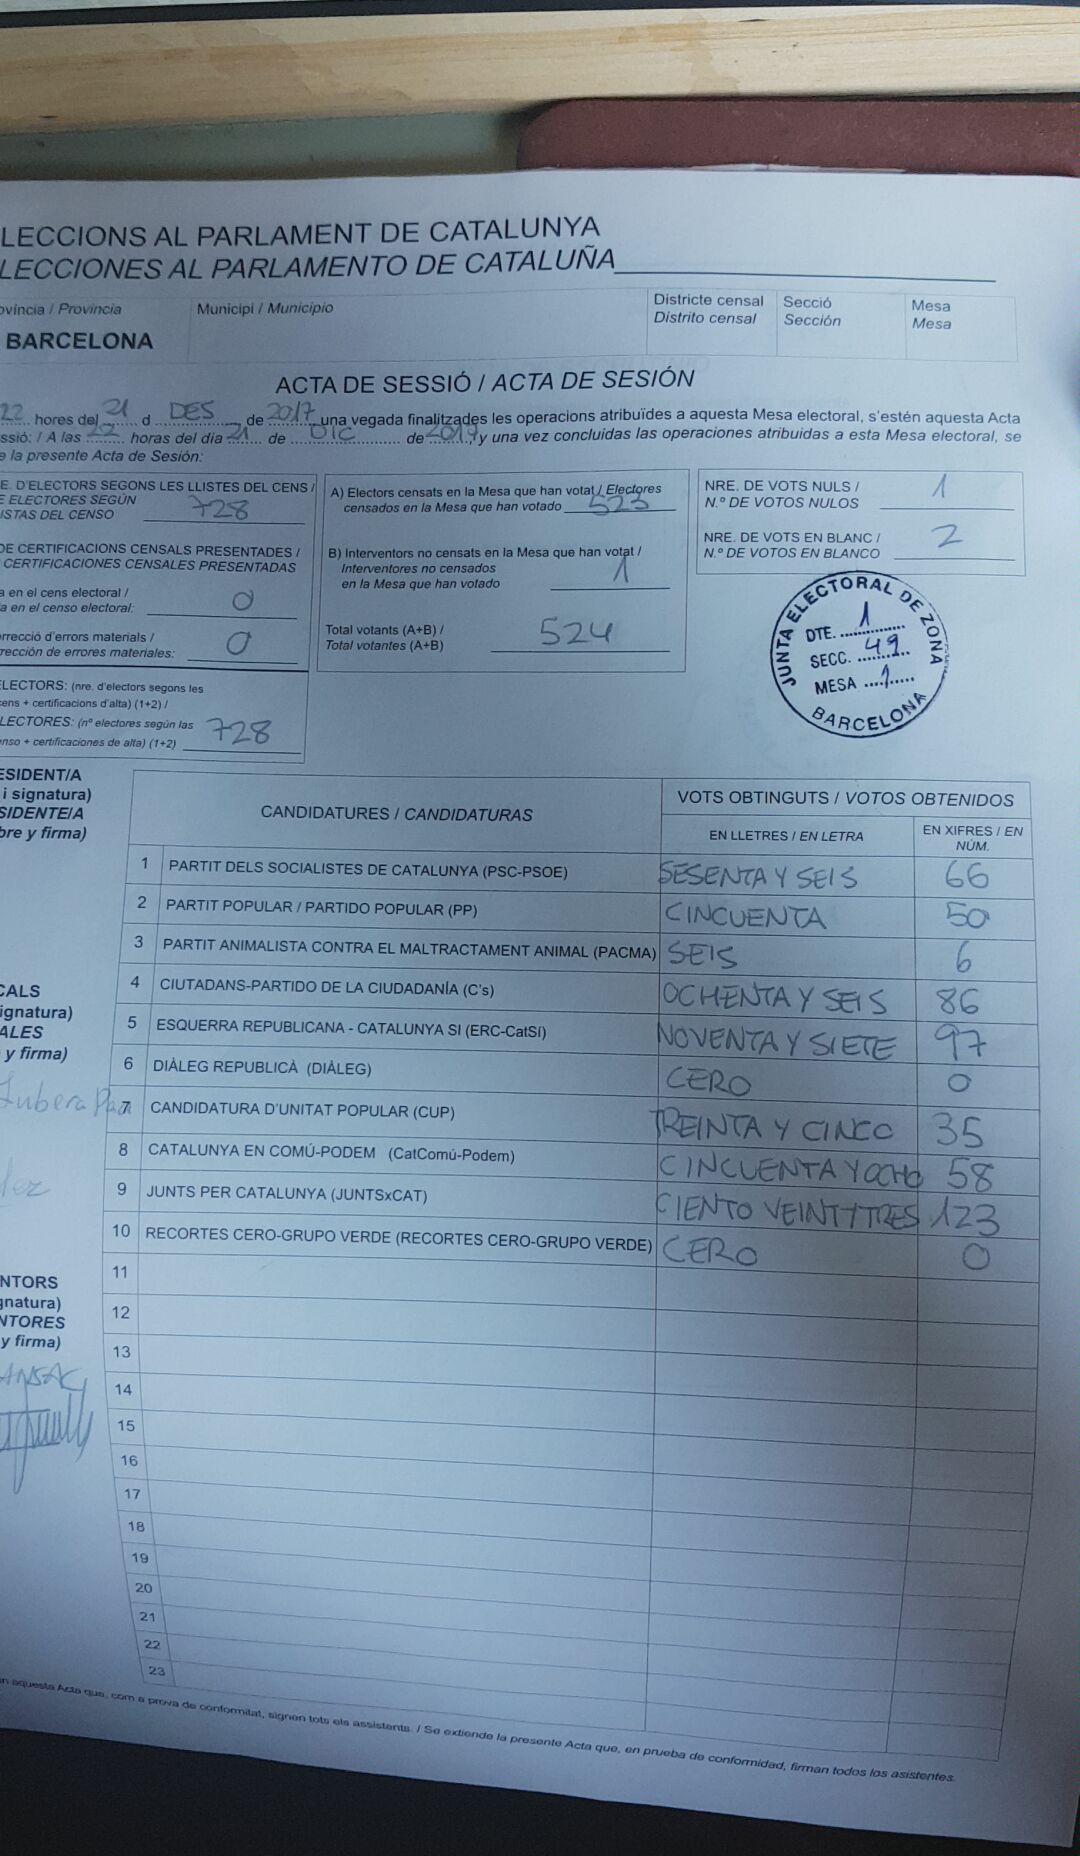 LECCIONS AL PARLAMENT DE CATALUNYA
LECCIONES AL PARLAMENTO DE CATALUÑA
ovíncia / Provincia
Municipi / Municipio
Districte censal
Distrito censal
Secció
Sección
Mesa
Mesa
BARCELONA
ACTA DE SESSIÓ / ACTA DE SESIÓN
22 hores del 21 d DES de 2017 una vegada finalitzades les operacions atribuïdes a aquesta Mesa electoral, s'estén aquesta Acta
ssió: / A las 22 horas del día 21 de DIC de 2017, y una vez concluidas las operaciones atribuidas a esta Mesa electoral, se
e la presente Acta de Sesión:
E. D'ELECTORS SEGONS LES LLISTES DEL CENS /
E ELECTORES SEGÚN
ISTAS DEL CENSO 728
DE CERTIFICACIONS CENSALS PRESENTADES /
CERTIFICACIONES CENSALES PRESENTADAS
a en el cens electoral /
a en el censo electoral: 0
rrecció d'errors materials /
rección de errores materiales: 0
LECTORS: (nre. d'electors segons les
cens + certificacions d'alta) (1+2) /
LECTORES: (nº electores según las
enso + certificaciones de alta) (1+2) 728
A) Electors censats en la Mesa que han votat / Electores
censados en la Mesa que han votado 523
B) Interventors no censats en la Mesa que han votat /
Interventores no censados
en la Mesa que han votado 1
Total votants (A+B) /
Total votantes (A+B) 524
NRE. DE VOTS NULS /
N.º DE VOTOS NULOS 1
NRE. DE VOTS EN BLANC /
N.º DE VOTOS EN BLANCO 2
JUNTA ELECTORAL DE ZONA
DTE. 1
SECC. 49
MESA 1
BARCELONA
ESIDENT/A
i signatura)
SIDENTE/A
bre y firma)
CANDIDATURES / CANDIDATURAS
VOTS OBTINGUTS / VOTOS OBTENIDOS
EN LLETRES / EN LETRA
EN XIFRES / EN
NÚM.
1 PARTIT DELS SOCIALISTES DE CATALUNYA (PSC-PSOE) SESENTA Y SEIS 66
2 PARTIT POPULAR / PARTIDO POPULAR (PP) CINCUENTA 50
3 PARTIT ANIMALISTA CONTRA EL MALTRACTAMENT ANIMAL (PACMA) SEIS 6
4 CIUTADANS-PARTIDO DE LA CIUDADANÍA (C's) OCHENTA Y SEIS 86
5 ESQUERRA REPUBLICANA - CATALUNYA SI (ERC-CatSí) NOVENTA Y SIETE 97
6 DIÀLEG REPUBLICÀ (DIÀLEG) CERO 0
7 CANDIDATURA D'UNITAT POPULAR (CUP) TREINTA Y CINCO 35
8 CATALUNYA EN COMÚ-PODEM (CatComú-Podem) CINCUENTA Y OCHO 58
9 JUNTS PER CATALUNYA (JUNTSxCAT) CIENTO VEINTITRES 123
10 RECORTES CERO-GRUPO VERDE (RECORTES CERO-GRUPO VERDE) CERO 0
11
12
13
14
15
16
17
18
19
20
21
22
23
CALS
ignatura)
ALES
y firma)
NTORS
gnatura)
NTORES
y firma)
ANSAC
n aquesta Acta que, com a prova de conformitat, signen tots els assistents. / Se extiende la presente Acta que, en prueba de conformidad, firman todos los asistentes.